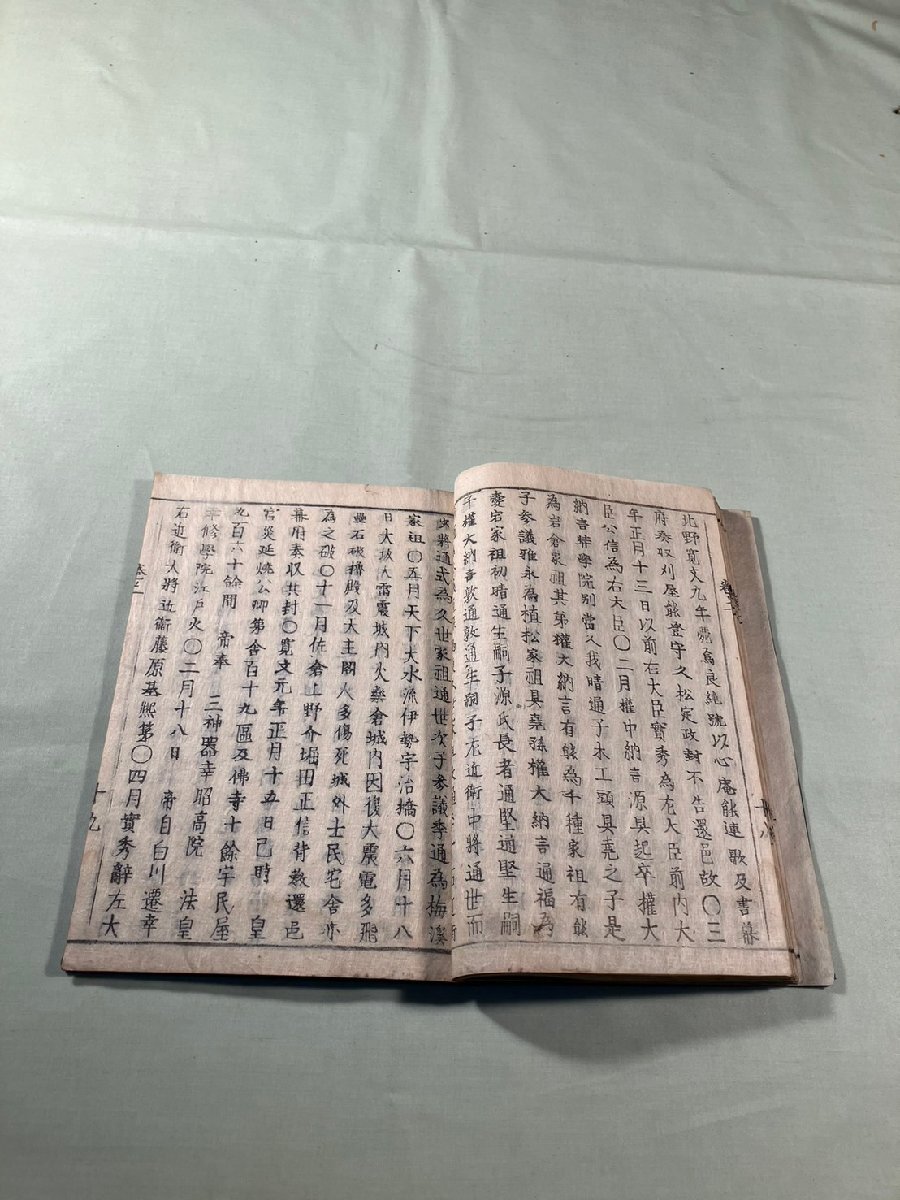 北野寬文九年爲良純號以心庵能連歌及書幕
府奉収刈屋能登守久松定政封不告還邑故〇三
年正月十三日以前右大臣實秀為左大臣前內大
臣公信為右大臣〇二月權中納言源具起卒權大
納言奘學院別當久我晴通子木工頭具堯之子是
為岩倉家祖其弟權大納言有能為千種家祖有能
子參議雅永為植松家祖具堯孫權大納言通福為
愛宕家祖初晴通生嗣子源氏長者通堅通堅生嗣
子權大納言敦通敦通生嗣子左近衛中將通世而
通式為久世家祖通世次子參議季通為梅溪
家祖〇五月天下大水漂伊勢宇治橋〇六月十八
日大坂大雷震城內火藥舍城內因復大震電多飛
巨石破櫓殿及大主閣人多傷死城外士民宅舍亦
為之破〇十一月佐倉上野介堀田正信背教還邑
幕府奉収其封〇寬文元年正月十五日巳時皇
宮災延燒公卿第舍百十九區及佛寺十餘宇民屋
九百六十餘間 帝奉 三神器幸照高院 法皇
幸修學院江戶火〇二月十八日 帝自白川遷幸
右近衛大將近衛藤原基熈第〇四月實秀辭左大
卷三
十八
卷三
十九